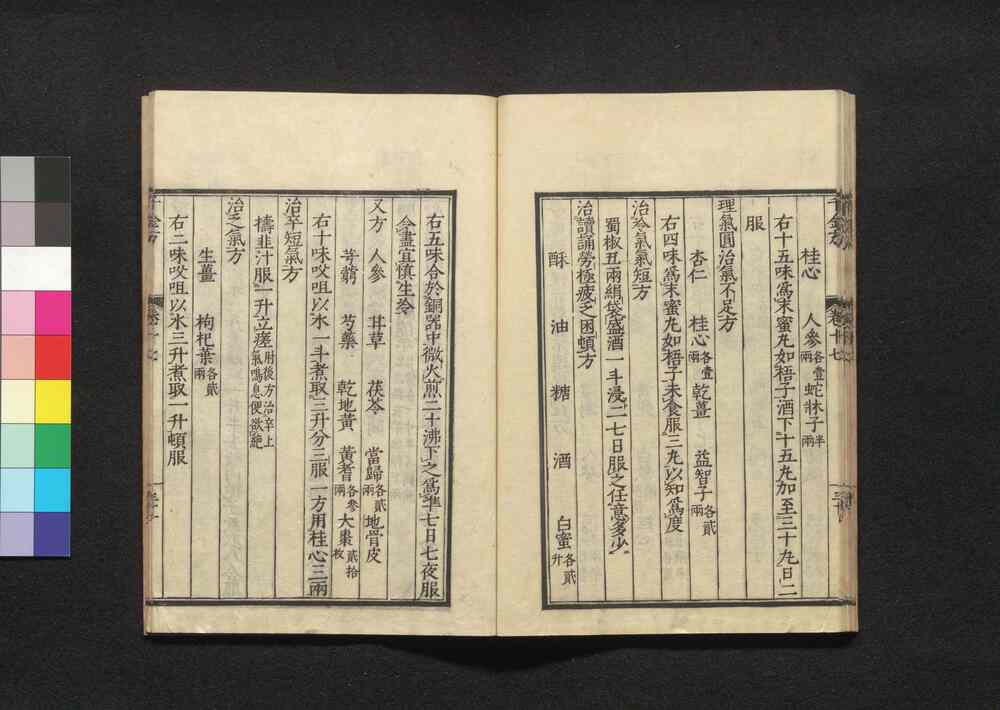 桂心　人參各壹兩　蛇牀子半兩
右十五味爲末蜜丸如梧子酒下十五丸加至三十丸日二
服
理氣圓治氣不足方
杏仁　桂心各壹兩　乾薑　益智子各貳兩
右四味爲末蜜丸如梧子未食服三丸以知爲度
治冷氣氣短方
蜀椒五兩絹袋盛酒一斗浸二七日服之任意多少
治讀誦勞極疲乏困頓方
酥　油　糖　酒　白蜜各貳升
右五味合於銅器中微火煎二十沸下之爲準七日七夜服
令盡宜慎生冷
又方　人參　甘草　茯苓　當歸各貳兩　地骨皮
芎藭　芍藥　乾地黃　黃耆各參兩　大棗貳拾枚
右十味㕮咀以水一斗煮取三升分三服一方用桂心三兩
治卒短氣方
擣韭汁服一升立瘥肘後方治卒上氣鳴息便欲絕
治乏氣方
生薑　枸杞葉各貳兩
右二味㕮咀以水三升煮取一升頓服